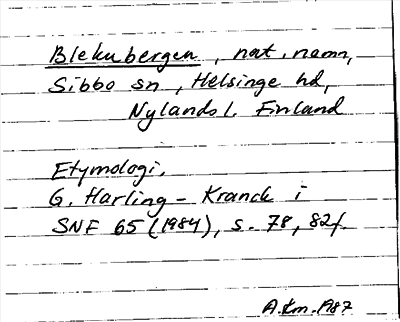 Blekubergen, nat. namn,
Sibbo sn, Helsinge hd,
Nylands l. Finland
Etymologi.
G. Harling-Kranck i
SNF 65 (1984), s. 78, 82f.
A.Km. 1987